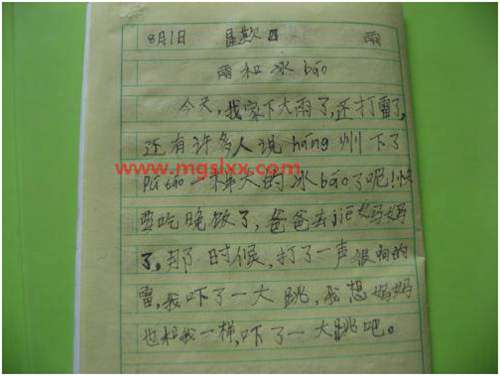 8月1日 星期日 雨
雨和冰bāo
今天,我家下大雨了,还打雷了,
还有许多人说háng州下了
pú táo一样大的冰báo了呢!快
要吃晚饭了,爸爸去jiē妈妈
了,那时候,打了一声很响的
雷,我吓了一大跳,我想妈妈
也和我一样,吓了一大跳吧。
www.mgslxx.com